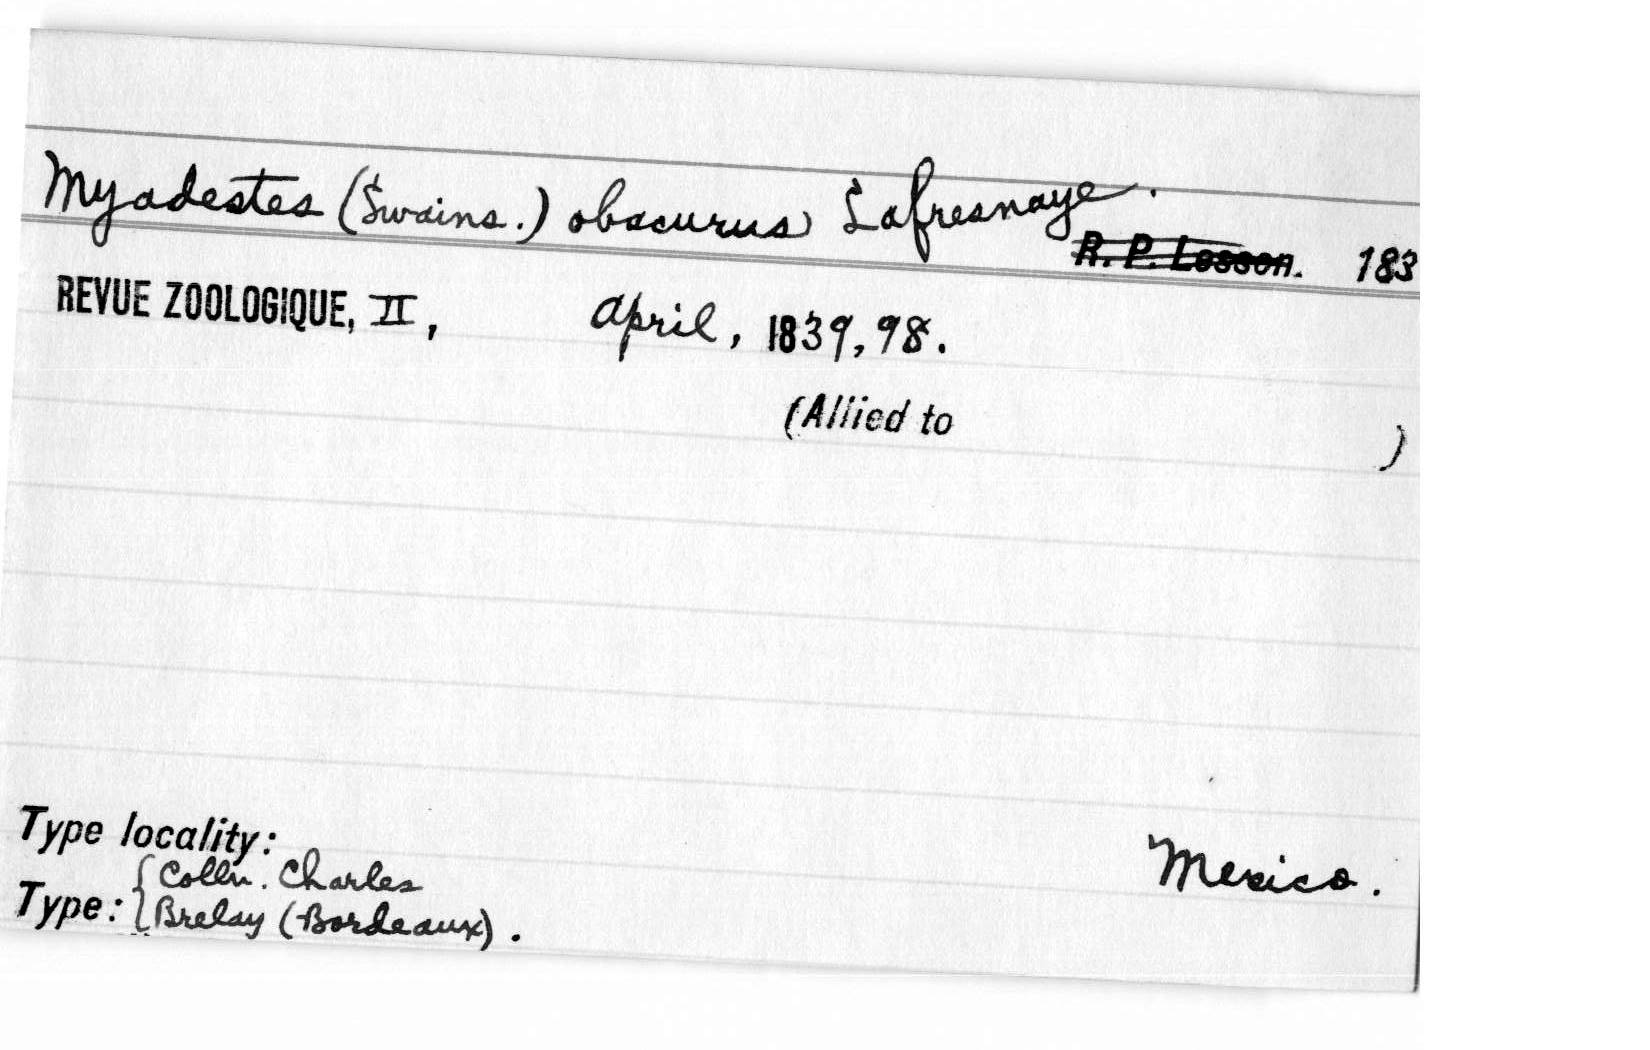 Myadestes (Swains.) obscurus Lafresnaye.
R. P. Lesson. 183
REVUE ZOOLOGIQUE, II, April, 1839, 98.
(Allied to )
Type locality: Mexico.
Type: { Colln. Charles
Brelay (Bordeaux).